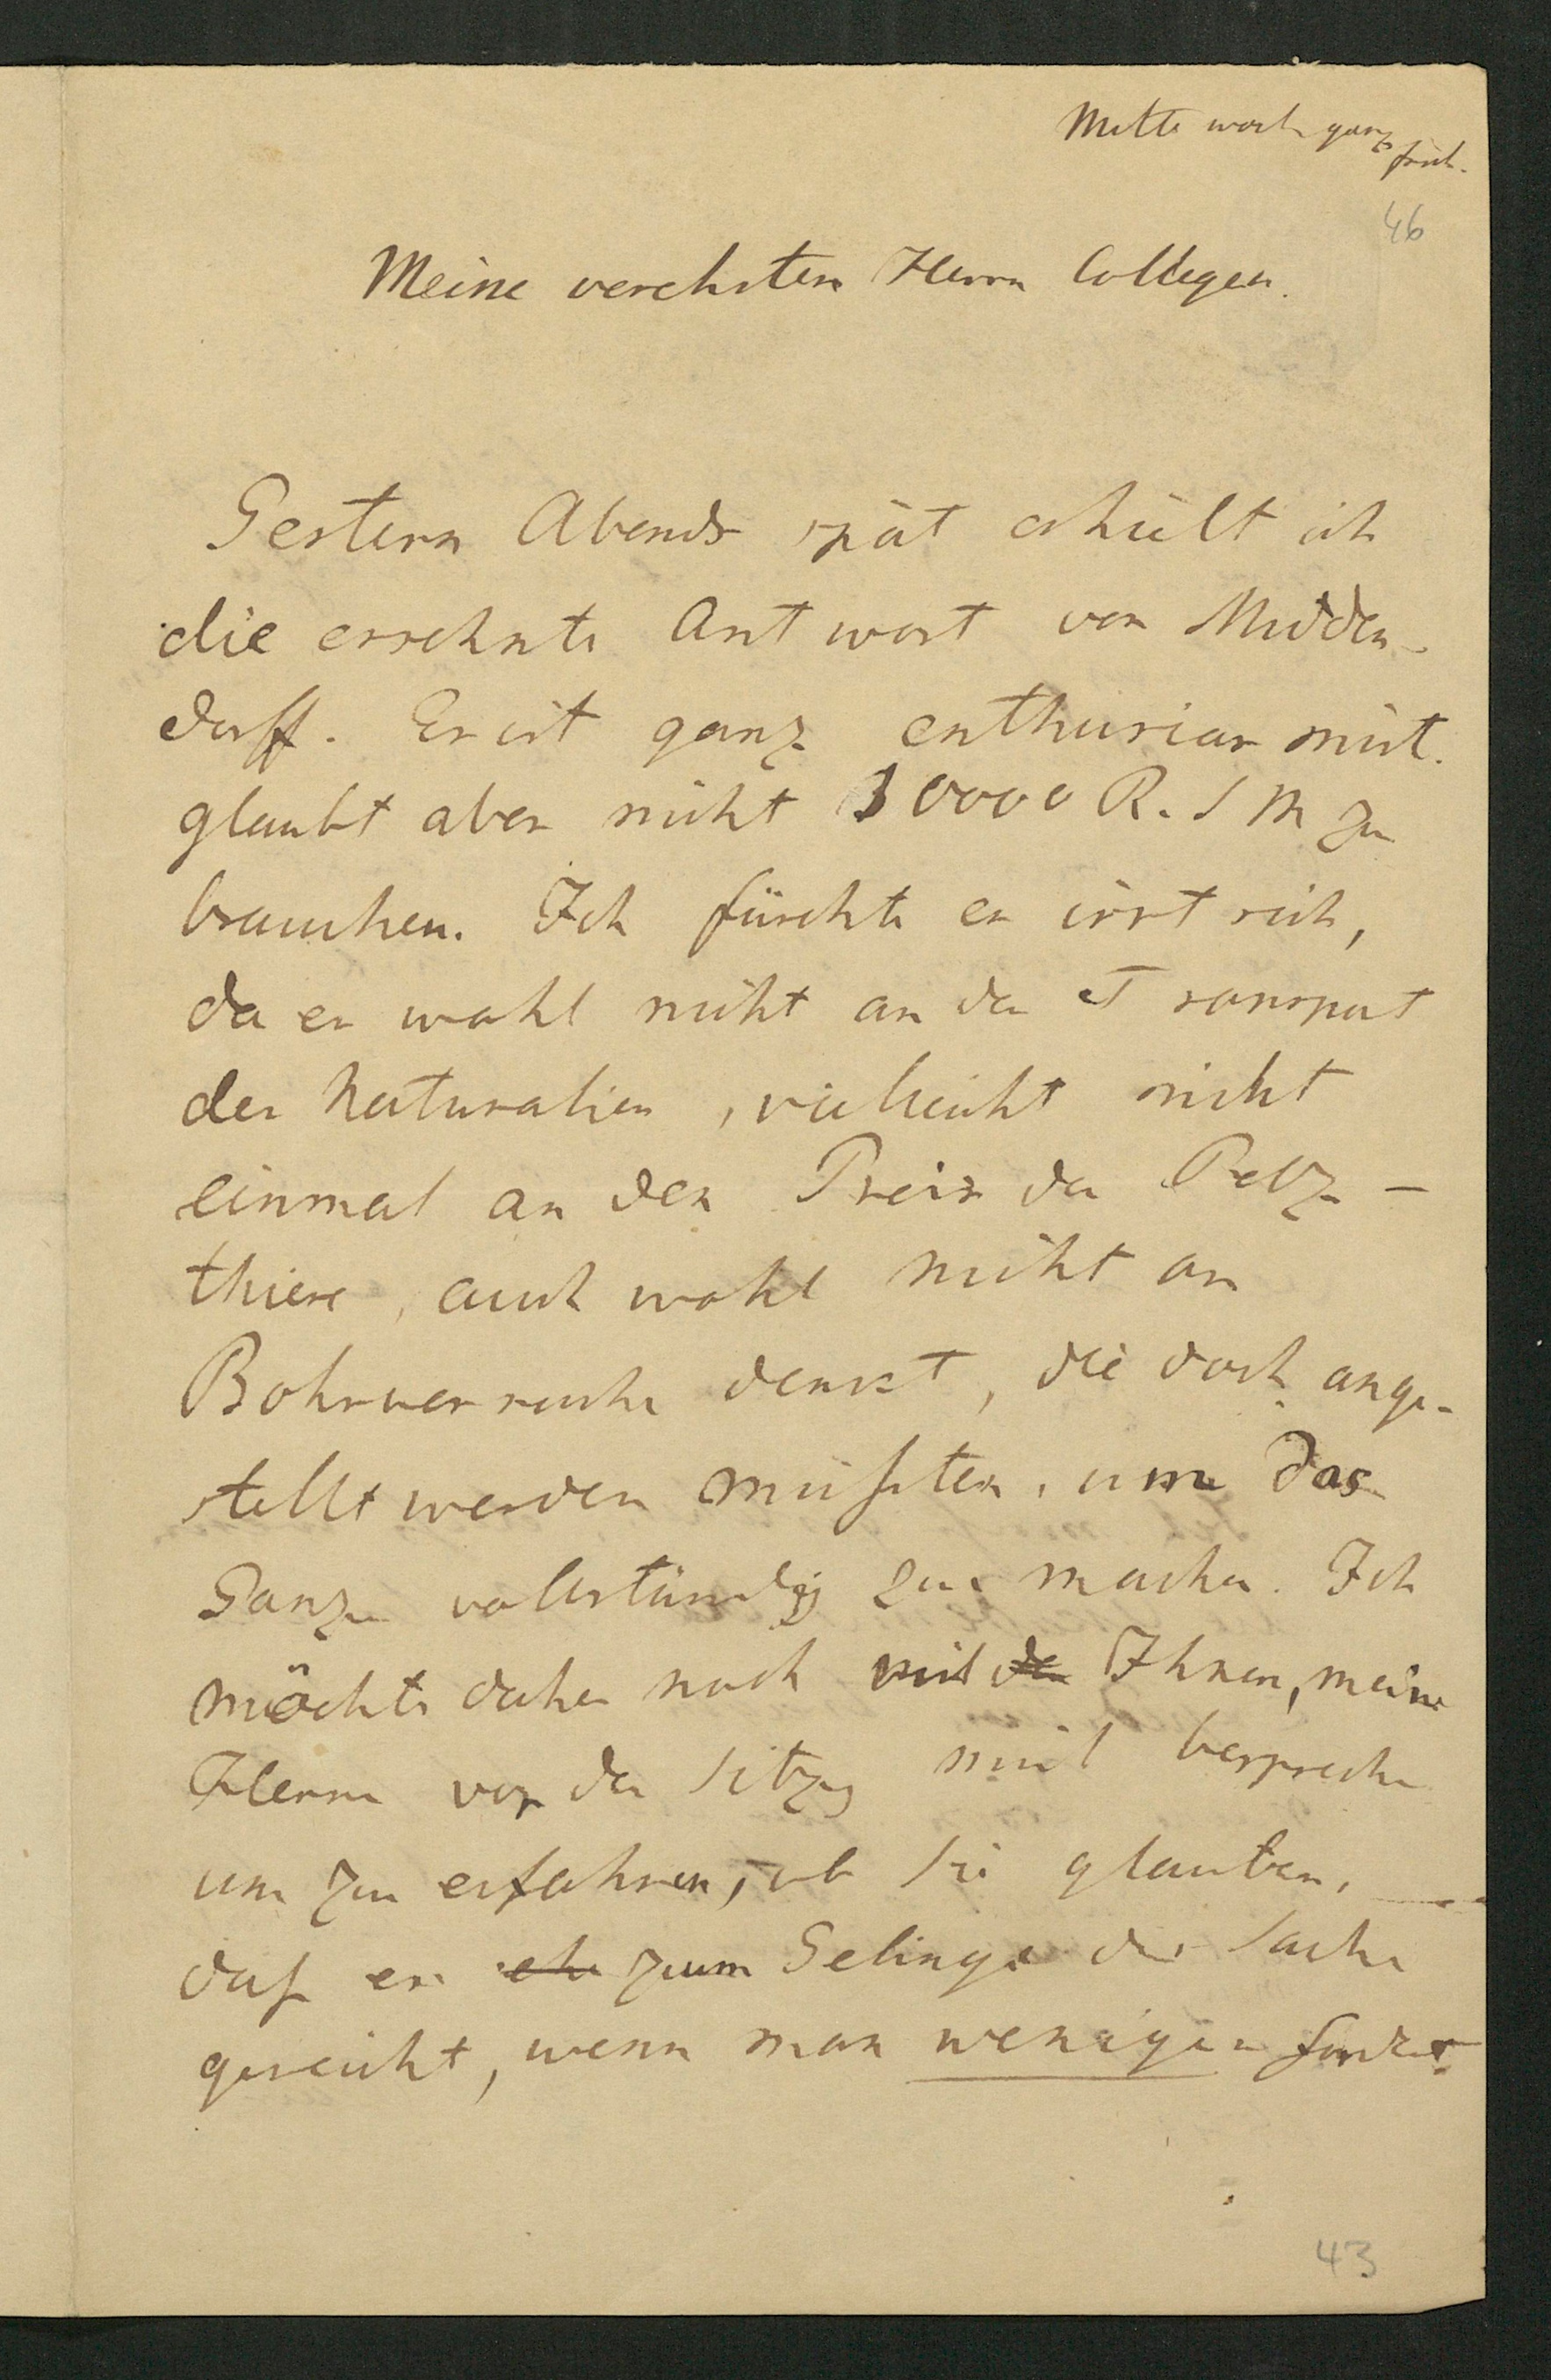 Mittewoch ganz
früh.
46
Meine verehrten Herrn Collegen.
Gestern Abends spät erhielt ich
die ersehnte Antwort von Midden-
dorff. Er ist ganz enthusiasmirt.
glaubt aber nicht 10000 R. S M zu
brauchen. Ich fürchte er irrt sich,
da er wohl nicht an den Transport
der Naturalien, vielleicht nicht
einmal an den Preis der Pelz-
thiere, auch wohl nicht an
Bohrversuche denkt, die doch ange-
stellt werden müsten, um das
Ganze vollständig zu machen. Ich
möchte daher noch mit den Ihnen, meine
Herrn vor der Sitzg mich besprechen
um zu erfahren, ob Sie glauben,
daß es ehe zum Gelingen der Sache
gereicht, wenn man weniger fordert.
43